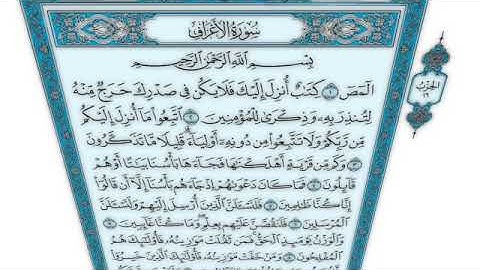 سُورَةُ الأَعْرَافِ
بِسْمِ ٱللَّهِ ٱلرَّحْمَٰنِ ٱلرَّحِيمِ
الٓمٓصٓ ١ كِتَٰبٌ أُنزِلَ إِلَيْكَ فَلَا يَكُن فِى صَدْرِكَ حَرَجٌ مِّنْهُ
لِتُنذِرَ بِهِۦ وَذِكْرَىٰ لِلْمُؤْمِنِينَ ٢ ٱتَّبِعُوا۟ مَآ أُنزِلَ إِلَيْكُم
مِّن رَّبِّكُمْ وَلَا تَتَّبِعُوا۟ مِن دُونِهِۦٓ أَوْلِيَآءَ قَلِيلًا مَّا تَذَكَّرُونَ
٣ وَكَم مِّن قَرْيَةٍ أَهْلَكْنَٰهَا فَجَآءَهَا بَأْسُنَا بَيَٰتًا أَوْ هُمْ
قَآئِلُونَ ٤ فَمَا كَانَ دَعْوَىٰهُمْ إِذْ جَآءَهُم بَأْسُنَآ إِلَّآ أَن قَالُوٓا۟
إِنَّا كُنَّا ظَٰلِمِينَ ٥ فَلَنَسْـَٔلَنَّ ٱلَّذِينَ أُرْسِلَ إِلَيْهِمْ وَلَنَسْـَٔلَنَّ
ٱلْمُرْسَلِينَ ٦ فَلَنَقُصَّنَّ عَلَيْهِم بِعِلْمٍ وَمَا كُنَّا غَآئِبِينَ ٧
وَٱلْوَزْنُ يَوْمَئِذٍ ٱلْحَقُّ فَمَن ثَقُلَتْ مَوَٰزِينُهُۥ فَأُو۟لَٰٓئِكَ هُمُ
ٱلْمُفْلِحُونَ ٨ وَمَنْ خَفَّتْ مَوَٰزِينُهُۥ فَأُو۟لَٰٓئِكَ ٱلَّذِينَ خَسِرُوٓا۟
الحِزْبُ
١٦